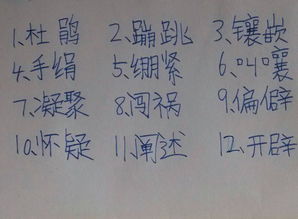 1.杜鹃 2.蹦跳 3.镶嵌
4.手绢 5.绷紧 6.叫嚷
7.凝聚 8.闯祸 9.偏僻
10.怀疑 11.阐述 12.开辟